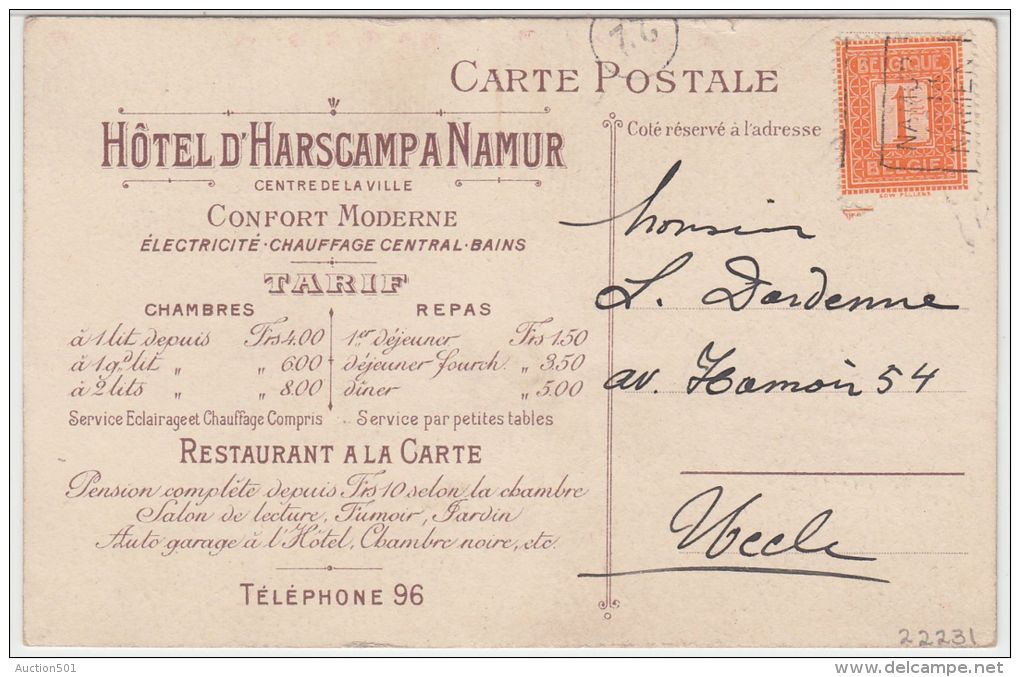 7.6
CARTE POSTALE
HÔTEL D'HARSCAMP A NAMUR
CENTRE DE LA VILLE
CONFORT MODERNE
ÉLECTRICITÉ · CHAUFFAGE CENTRAL · BAINS
TARIF
CHAMBRES
à 1 lit depuis Frs 4.00
à 1 gd lit „ „ 6.00
à 2 lits „ „ 8.00
Service Eclairage et Chauffage Compris
REPAS
1er déjeuner Frs 1.50
déjeuner fourch. „ 3.50
diner „ 5.00
Service par petites tables
RESTAURANT A LA CARTE
Pension complète depuis Frs 10 selon la chambre
Salon de lecture, Fumoir, Jardin
Auto garage à l'Hôtel, Chambre noire, etc.
TÉLÉPHONE 96
Coté réservé à l'adresse
BELGIQUE
1
BELGIË
NAMUR
NAMEN
Monsieur
L. Dardenne
av. Hamoir 54
Uccle
22231
Auction501
www.delcampe.net